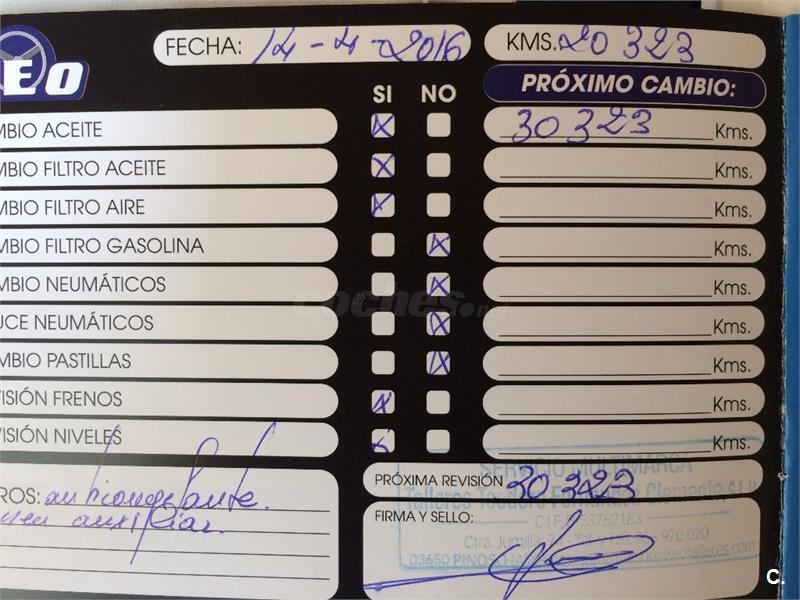 EO
FECHA: 14-4-2016
KMS. 20323
SI NO
PRÓXIMO CAMBIO:
MBIO ACEITE X 30323 Kms.
MBIO FILTRO ACEITE X Kms.
MBIO FILTRO AIRE X Kms.
MBIO FILTRO GASOLINA X Kms.
MBIO NEUMÁTICOS X Kms.
UCE NEUMÁTICOS X Kms.
MBIO PASTILLAS X Kms.
VISIÓN FRENOS X Kms.
VISIÓN NIVELES Kms.
coches.net
PRÓXIMA REVISIÓN 30323
ROS: anticongelante.
auxiliar
FIRMA Y SELLO:
SERVICIO MULTIMARCA
Talleres Teodoro
C.I.F.
Ctra. Jumilla,
03650 PINOSO
C.